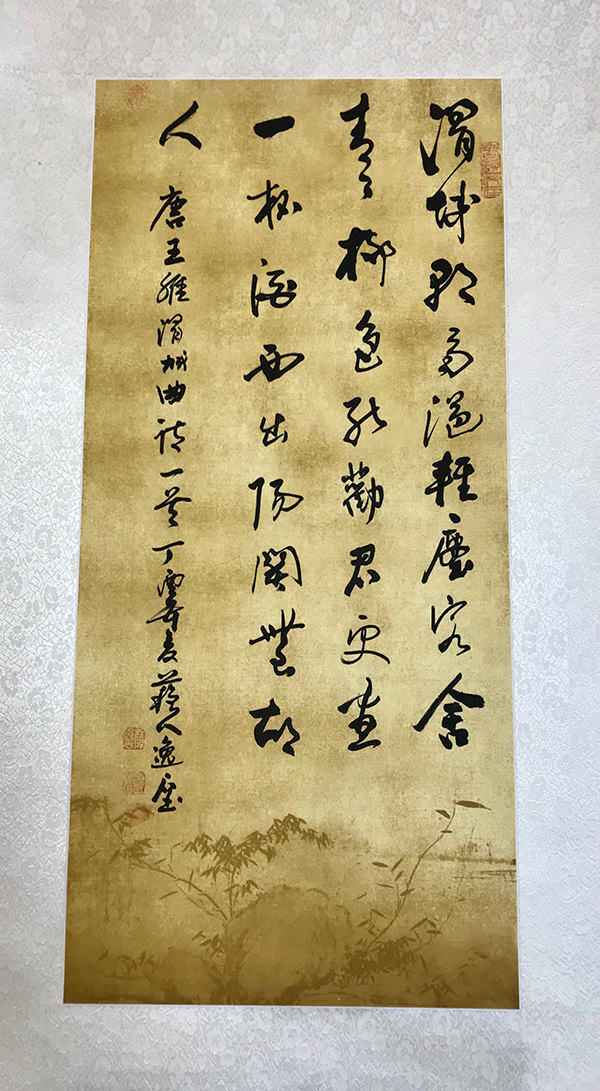 渭城朝雨浥輕塵客舍
青々柳色新勸君更盡
一杯酒西出陽關無故
人 唐王維渭城曲詩一首 丁 藝人逸塵